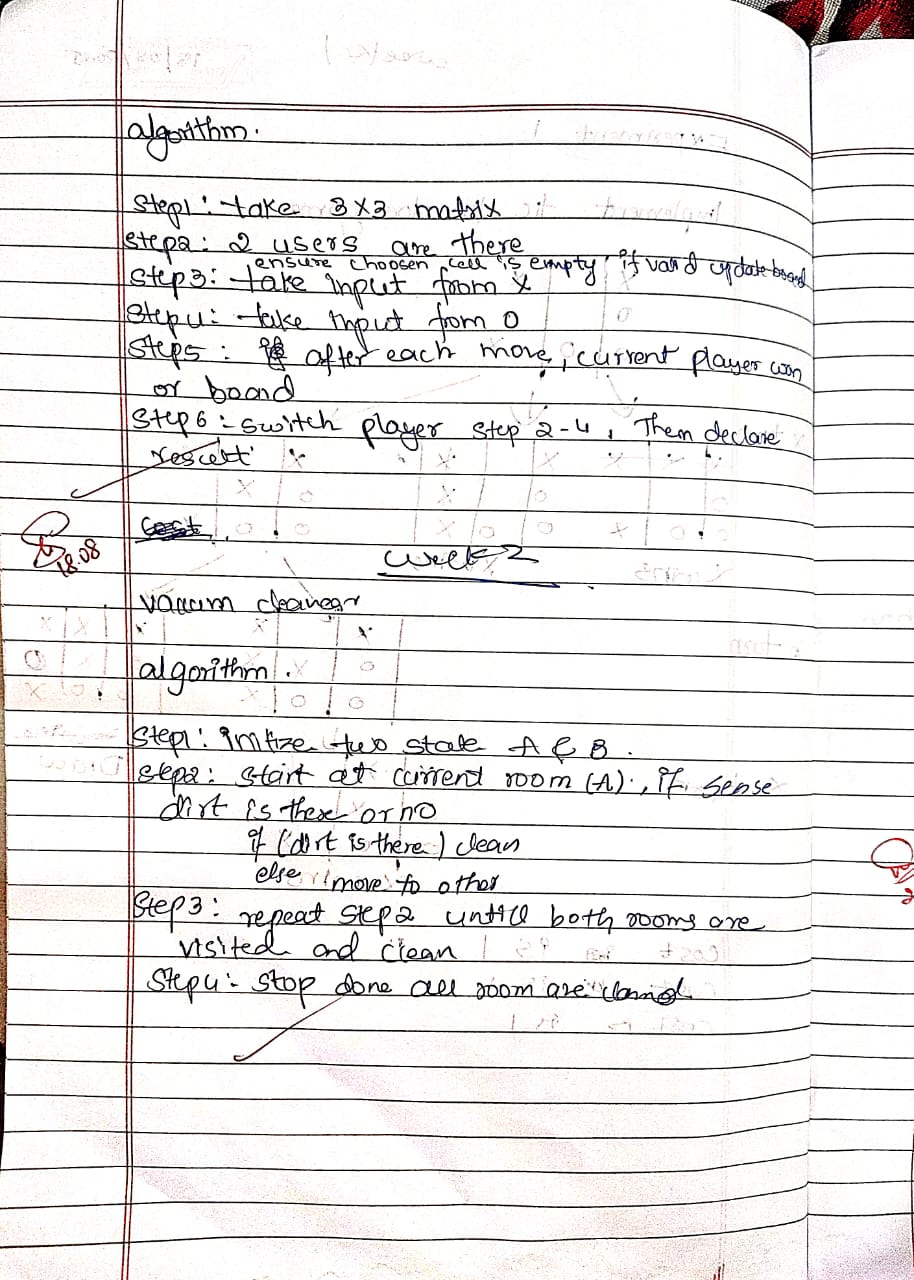 algorithm.
Step1: take 3X3 matrix
step2: 2 users are there
ensure choosen cell is empty, if valid update board
Step3: take input from X
Step4: take input from O
Step5: after each move, current player won
or board
Step6: switch player step 2-4, Then declare
result
18.08
week 2
vacum cleanear
algorithm.
Step1: intize two state A & B.
Step2: start at current room (A), if sense
dirt is there or no
if (dirt is there) clean
else move to other
Step3: repeat step2 untill both rooms are
visited and clean
Step4: stop done all room are